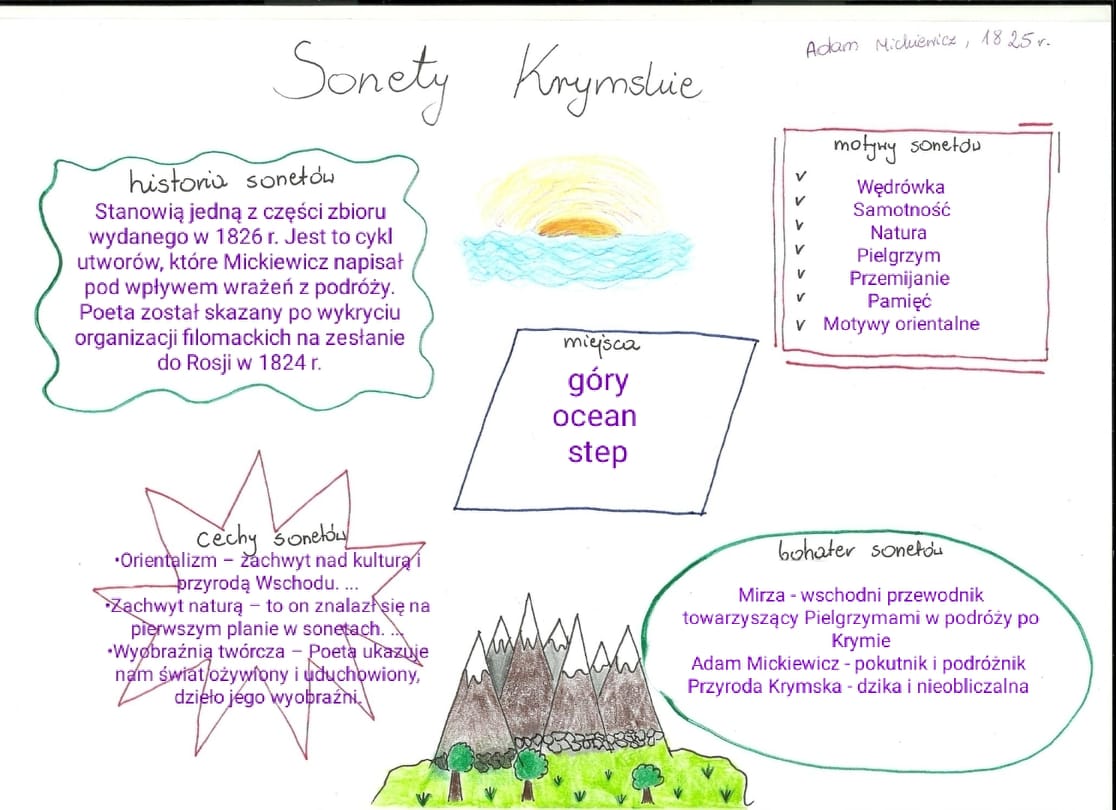 Sonety Krymskie
Adam Mickiewicz, 1825 r.
historia sonetów
Stanowią jedną z części zbioru
wydanego w 1826 r. Jest to cykl
utworów, które Mickiewicz napisał
pod wpływem wrażeń z podróży.
Poeta został skazany po wykryciu
organizacji filomackich na zesłanie
do Rosji w 1824 r.
motywy sonetów
✓ Wędrówka
✓ Samotność
✓ Natura
✓ Pielgrzym
✓ Przemijanie
✓ Pamięć
✓ Motywy orientalne
miejsca
góry
ocean
step
cechy sonetów
•Orientalizm – zachwyt nad kulturą i
przyrodą Wschodu. ...
•Zachwyt naturą – to on znalazł się na
pierwszym planie w sonetach. ...
•Wyobraźnia twórcza – Poeta ukazuje
nam świat ożywiony i uduchowiony,
dzieło jego wyobraźni.
bohater sonetów
Mirza - wschodni przewodnik
towarzyszący Pielgrzymami w podróży po
Krymie
Adam Mickiewicz - pokutnik i podróżnik
Przyroda Krymska - dzika i nieobliczalna